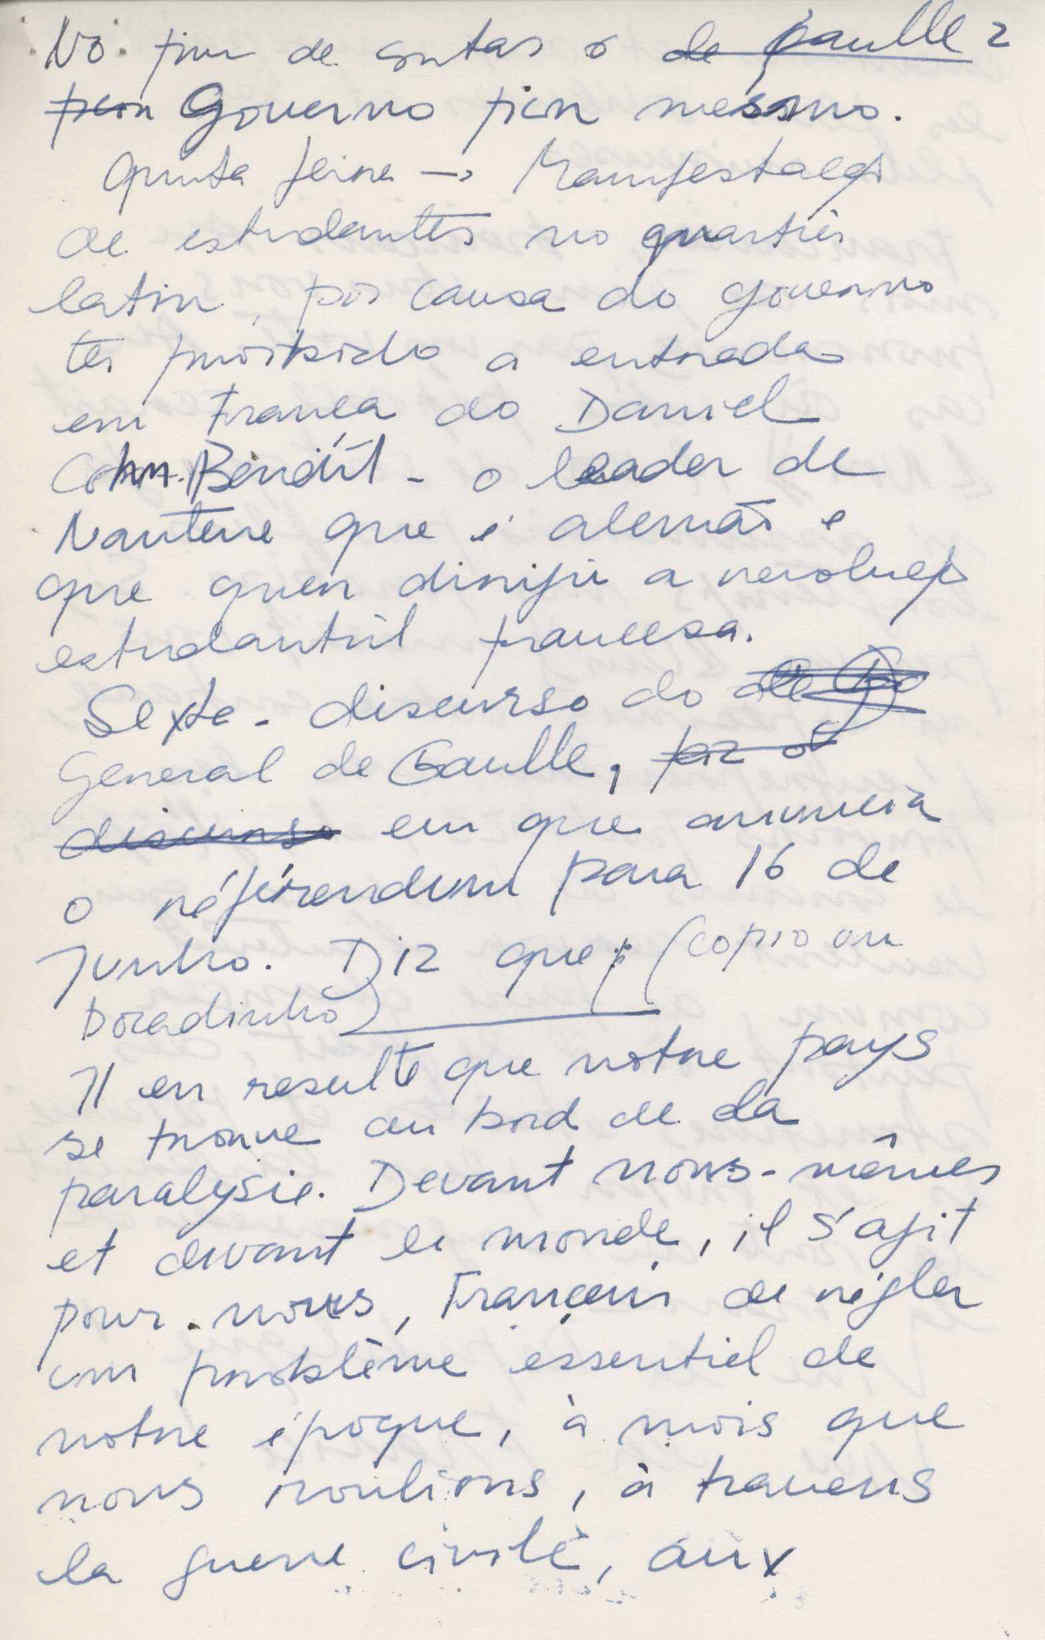 No fim de contas o de Gaulle 2
fica Governo fica mesmo.
Quinta feira → Manifestação
de estudantes no quartier
latin, por causa do governo
ter proibido a entrada
em França do Daniel
Cohn-Bendit - o leader de
Nanterre que é alemão e
que quer dirigir a revolução
estudantil francesa.
Sexta - discurso do de
General de Gaulle, faz o
discurso em que anuncia
o référendum para 16 de
Junho. Diz que: (copio ou
Doradinho)
Il en resulte que notre pays
se trouve au bord de la
paralysie. Devant nous-mêmes
et devant le monde, il s'agit
pour nous, Français de régler
un problème essentiel de
notre époque, à mois que
nous roulions, à travers
la guerre civile, aux